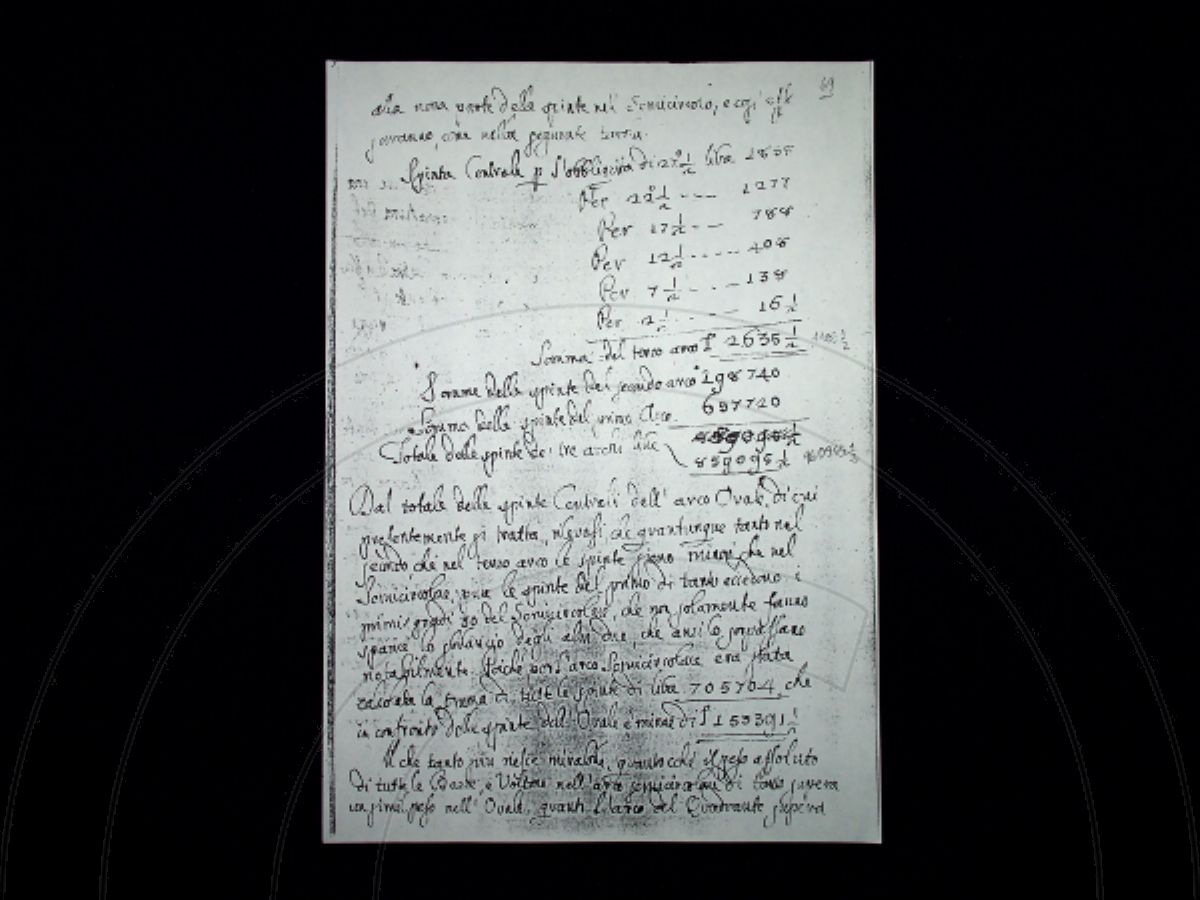 69
alla nona parte delle spinte nel Semicircolo, e così
saranno, come nella seguente
Spinta Centrale p l'obbliquità di 27° 1/2 libre 1835
Per 22° 1/2 --- 1277
Per 17 1/2 --- 788
Per 12 1/2 ----- 408
Per 7 1/2 --- 138
Per 2 1/2 ----- 16 1/2
Somma del terzo arco 2635 1/2
Somme delle spinte del secondo arco 198740
Somma delle spinte del primo Arco 657720
Totale delle spinte de' tre archi libre 859095 1/2
Dal totale delle spinte Centrali dell' arco Ovale, di cui
presentemente si tratta, rilevasi, che quantunque tanto nel
secondo, che nel terzo arco le spinte sieno minori, che nel
Semicircolare, pure le spinte del primo di tanto eccedono i
primi gradi 30 del Semicircolare, che non solamente fanno
sparire lo sbilancio degli altri due, che anzi lo sorpassano
notabilmente. Poiché per l'arco Semicircolare era stata
calcolata la somma di tutte le spinte di libre 705704, che
in confronto delle spinte dell' Ovale è minore di 153391 1/2
Il che tanto più riesce mirabile, quanto che il peso assoluto
di tutte le nell' arco semicircolare di
un simil peso nell' Ovale, quanti l'arco del Quadrante supera